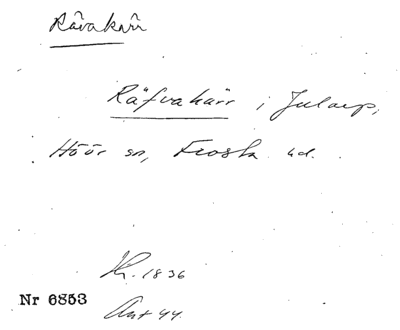 Råvakärr
Räfvakärr i Jularp,
Höör sn, Frosta hd.
Kr. 1836
Nr 6853
Ant 44.